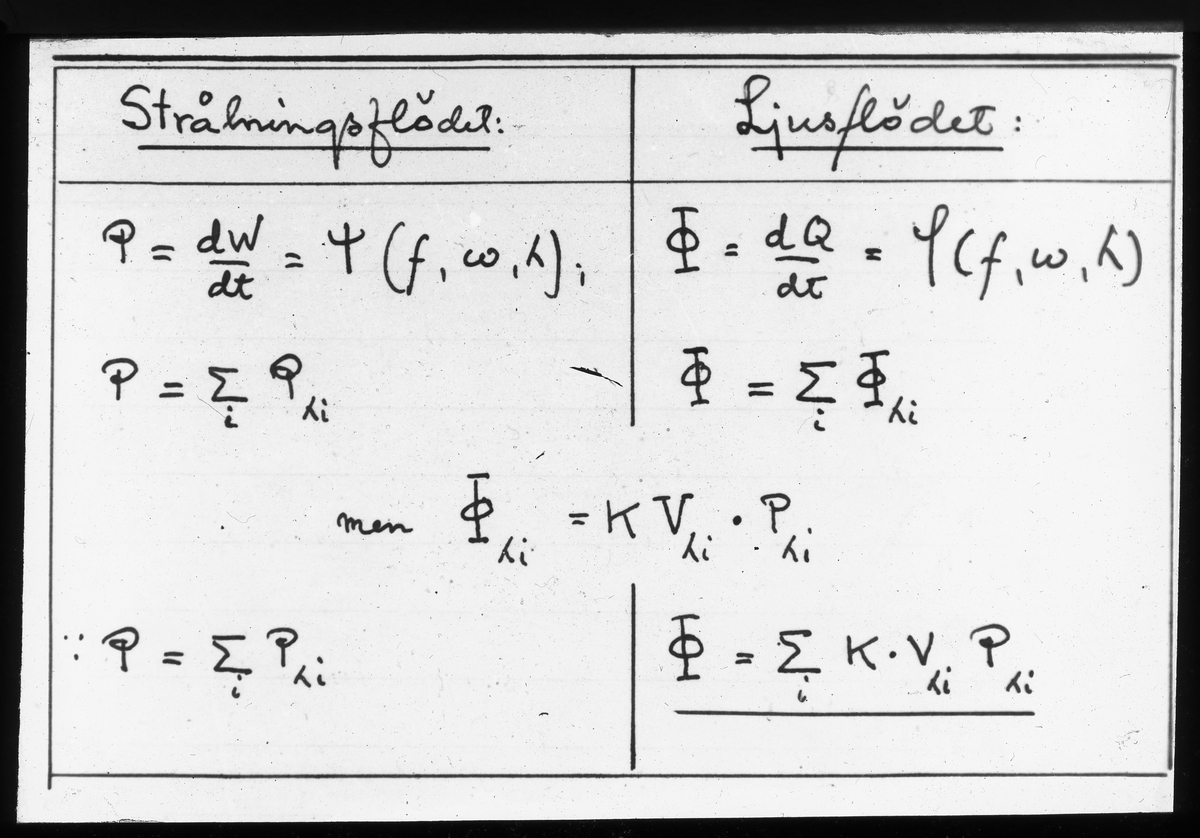 Strålningsflödet:
Ljusflödet:
P = dW/dt = Ψ (f, ω, λ);
Φ = dQ/dt = φ (f, ω, λ)
P = Σᵢ P_λi
Φ = Σᵢ Φ_λi
men Φ_λi = K V_λi · P_λi
∵ P = Σᵢ P_λi
Φ = Σᵢ K · V_λi P_λi